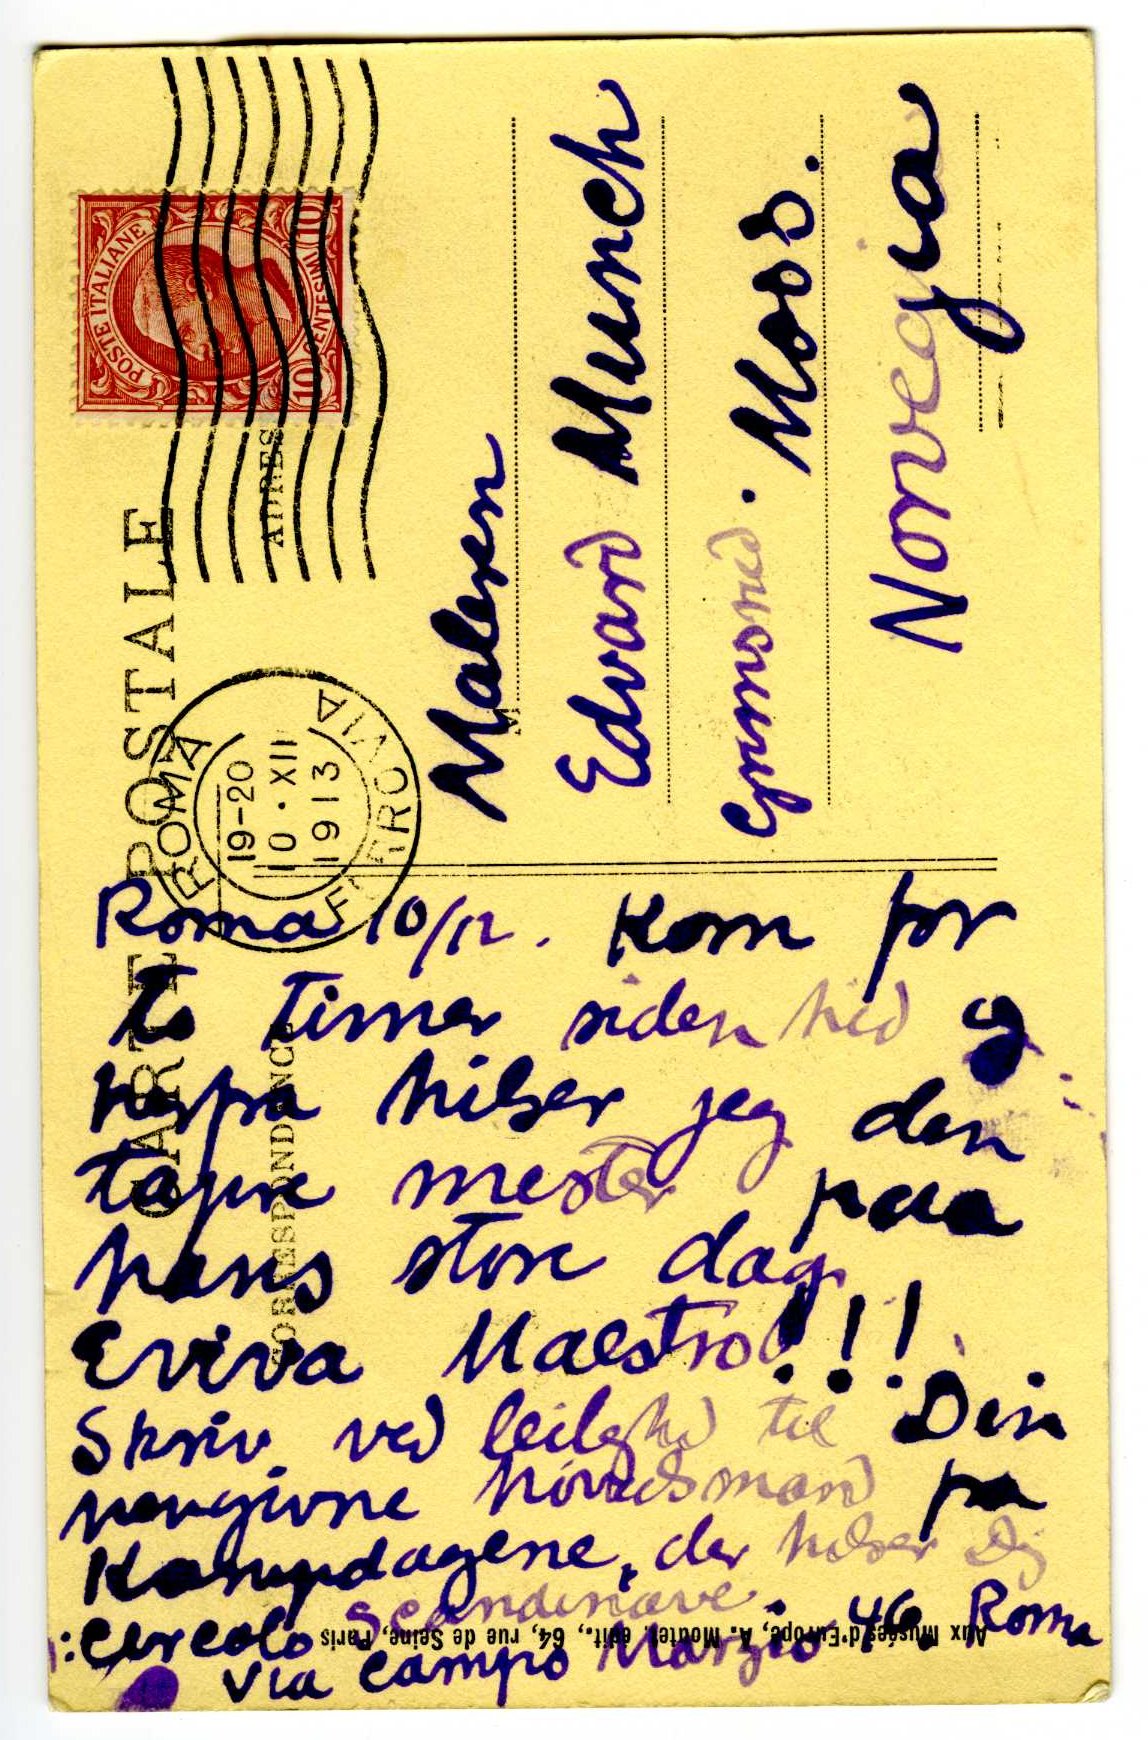 CARTE POSTALE
CORRESPONDANCE
ADRES
POSTE ITALIANE
10 CENTESIMI 10
ROMA
19-20
10·XII
1913
FERROVIA
Maleren
Edvard Munch
Grimsrød. Moss.
Norvegia
Roma 10/12. Kom for
to timer siden hid og
herfra hilser jeg den
tapre mester paa
hans store dag.
Eviva Maestro!!!
Skriv ved leilghd til Din
hengivne hövedsmand fra
Kampdagene, der hilser Dig
:Circolo Scandinave.
via campo Marzio 46 Roma
Aux Musées d'Europe, A. Moutet, édit., 64, rue de Seine, Paris